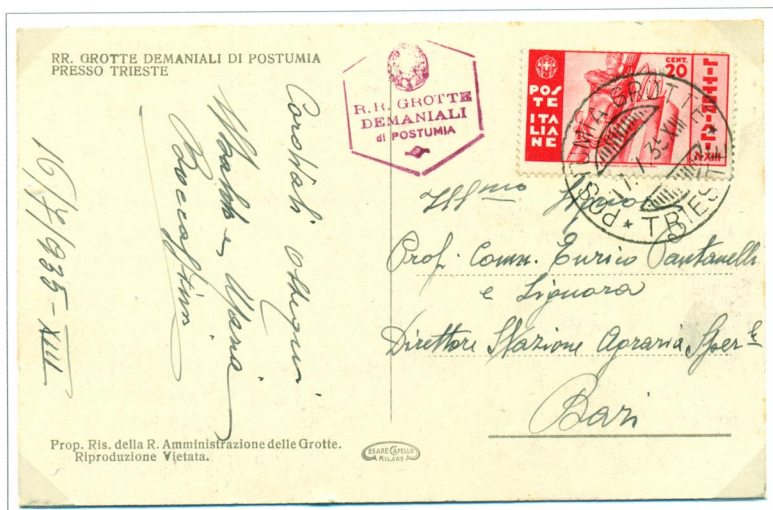 RR. GROTTE DEMANIALI DI POSTUMIA
PRESSO TRIESTE
R.R. GROTTE
DEMANIALI
di POSTUMIA
CENT.
20
POSTE
ITALIANE
LITTORIALI
A·XIII
POSTUMIA GROTTE * TRIESTE *
Cordiali Ossequi
Maria
16/7/935-XIII
Ill.mo Signor
Prof. Comm. Enrico Pantanelli
e Signora
Direttore Stazione Agraria Sper.le
Bari
Prop. Ris. della R. Amministrazione delle Grotte.
Riproduzione Vietata.
CESARE CAPELLO
MILANO